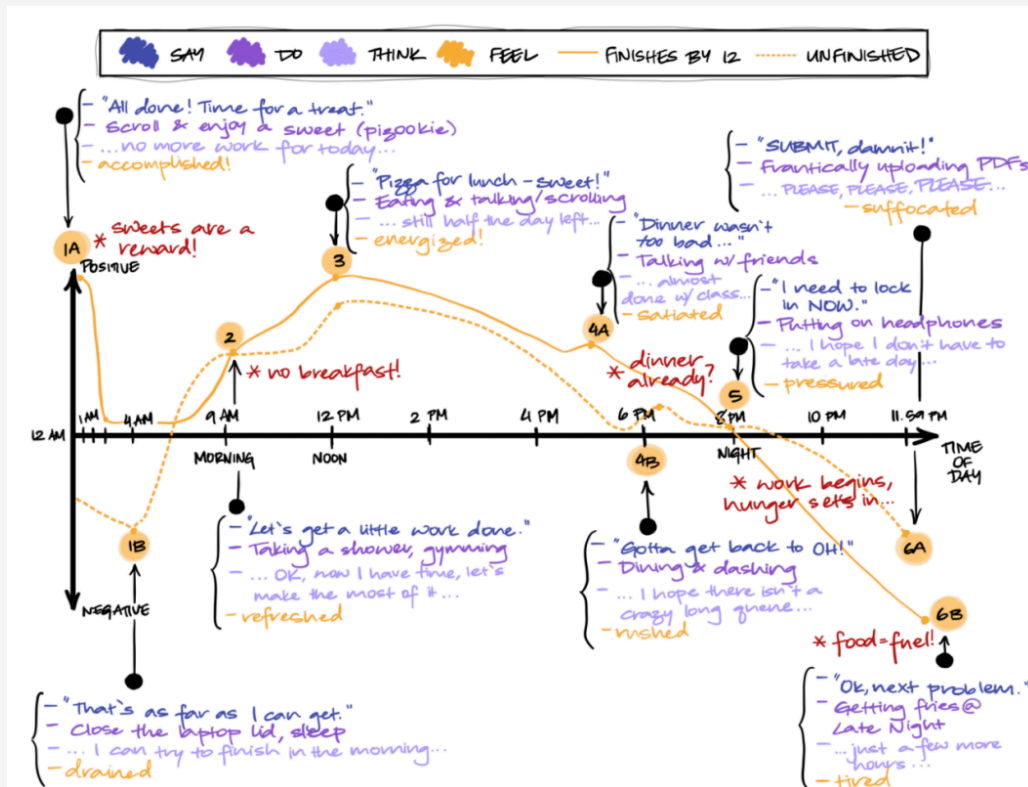 SAY DO THINK FEEL FINISHES BY 12 UNFINISHED
- "All done! Time for a treat."
- Scroll & enjoy a sweet (pizookie)
- ...no more work for today...
- accomplished!
1A
* sweets are a
reward!
POSITIVE
- "Pizza for lunch - sweet!"
- Eating & talking/scrolling
- ... still half the day left...
- energized!
3
- "Dinner wasn't
too bad..."
- Talking w/ friends
- ... almost
done w/ class...
- satiated
4A
- "SUBMIT, damnit!"
- Frantically uploading PDFs
- ... PLEASE, PLEASE, PLEASE...
- suffocated
- "I need to lock
in NOW."
- Putting on headphones
- ... I hope I don't have to
take a late day...
- pressured
5
2
* no breakfast!
* dinner
already?
12 AM
1 AM
4 AM
9 AM
12 PM
2 PM
4 PM
6 PM
8 PM
10 PM
11.59 PM
MORNING
NOON
NIGHT
TIME
OF
DAY
4B
* work begins,
hunger sets in...
1B
NEGATIVE
- "Let's get a little work done."
- Taking a shower, gymming
- ... OK, now I have time, let's
make the most of it...
- refreshed
- "Gotta get back to OH!"
- Dining & dashing
- ... I hope there isn't a
crazy long queue...
- rushed
6A
6B
* food=fuel!
- "That's as far as I can get."
- Close the laptop lid, sleep
- ... I can try to finish in the morning...
- drained
- "Ok, next problem."
- Getting fries @
Late Night
- ...just a few more
hours...
- tired